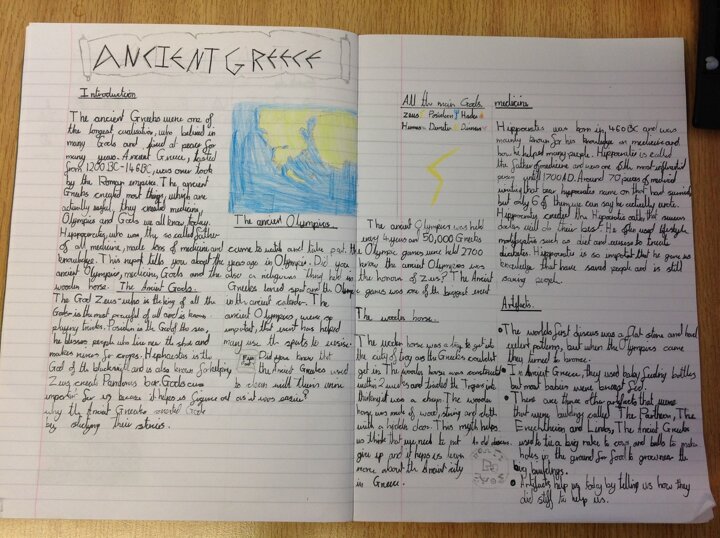 ANCIENT GREECE
Introduction
The ancient Greeks were one of
the longest civilisation, who belived in
many Gods and lived at peace for
many years. Ancient Greece, lasted
from 1200BC-146BC, was over took
by the Roman empire. The ancient
Greeks created most things which are
actually useful, they created medicine,
Olympics and Gods we all know today.
Hippocrates, who was thy so called father
of all medicine, made loads of medicine and
knowledge. This report tells you about the
ancient Olympics, medicine, Gods and the
wooden horse.
The Ancient Gods.
The God Zeus-who is the king of all the
Gods-is the most powerful of all and is known
playing tricks. Posidon is the God of the sea,
he blesses people who live near the shore and
makes rivers for crops. Hephaestus is the
God of the blacksmith and is also known for helping
Zeus create Pandoras box. Gods are
important for us because it helps us figure out
why the Ancient Greeks created Gods
by studying their stories.
The ancient Olympics.
came to watch and take part. The
years ago in Olympia. Did you
also a religious thing held in
Greeks loved sport and the Olympic
in the ancient calender. The
ancient Olympics, were so
important, that event has helped
many use the sports to exersise.
Fact Did you know that
the Ancient Greeks used
to clean well. There were
as it was easier?
All the main Gods.
Zeus Posidon Hades
Hermes Demeter
The ancient Olympics was held
every 4 years and 50,000 Greeks
Olympic games were held 2700
know the ancient Olympics was
the honour of Zeus? The Ancient
games was one of the biggest event
The wooden horse.
The wooden horse was a way to get into
the city of troy as the Greeks couldn't
get in. The wooden horse was constructed
within 2 weeks and fooled the Trojans into
thinking it was a The wooden
horse was made of wood, string and cloth
with a hidden door. This myth helps
us think that we need to not
give up and it helps us learn
more about the Ancient city
in Greece.
An old
medicine
Hippocrates was born in 460BC and was
mainly known for his knowledge in medicine and
how he helped many people. Hippocrates is called
the father of medicine and was one of the most influential
person until 1700AD. Around 70 pieces of medical
writing that bear hippocrates name on that had survived
but only 6 of them we can say he actually wrote.
Hippocrates created the Hippocratic oath, that means
doctors will do their best. He often used lifestyle
modifications such as diet and exersise to treat
diabetes. Hippocrates is so important that he gave us
knowledge that have saved people and is still
saving people.
Artifacts.
The worlds first discus was a flat stone and had
different patterns, but when the Olympics came
they turned to bronze.
In Ancient Greece, they used baby feeding bottles
but most babies were breast fed.
There are three other artifacts that were
that were buildings called The Pantheon, The
Erechtheion and The Ancient Greeks
used to tie a big rake to cows and bulls to make
holes in the ground for food to grow near the
big buildings.
Artifacts help us today by telling us how they
did stuff to help us.